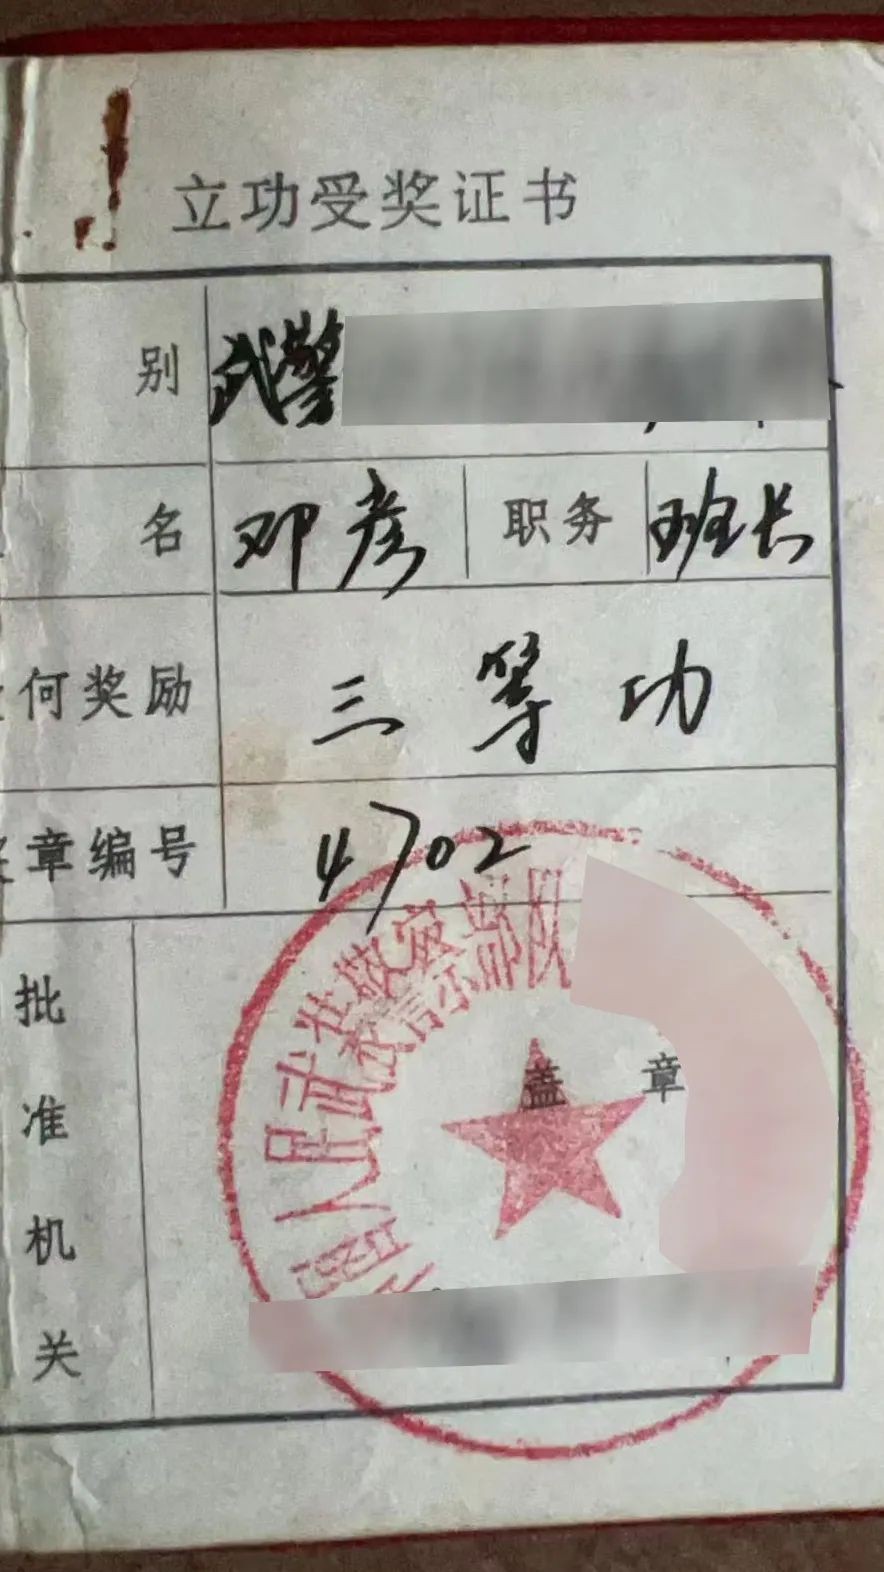 立功受奖证书
别 武警
名 邓彦 职务 班长
何奖励 三等功
章编号 4702
批准机关
盖章
国人民武装警察部队